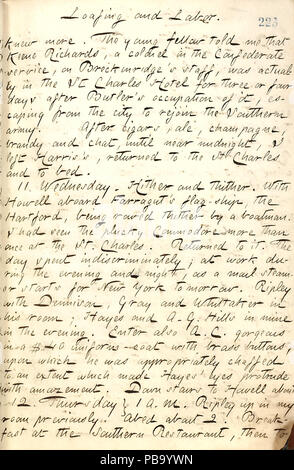 Loafing and Labor.
223
knew more. The young fellow told me that
Richards, a colonel in the Confederate
service, on Breckinridge's staff, was actual-
ly in the St. Charles Hotel for three or four
days after Butler's occupation of it, es-
caping from the city to rejoin the Southern
army. After cigars, ale, champagne,
brandy and chat, until near midnight, I
left Harris's, returned to the St. Charles
and to bed.
11. Wednesday. Hither and thither. With
Howell aboard Farragut's flag-ship, the
Hartford, being row'd thither by a boatman.
I had seen the plucky Commodore more than
once at the St. Charles. Returned to it. The
day spent indiscriminately; at work du-
ring the evening and night, as a mail steam-
er starts for New York to-morrow. Ripley
with Dennison, Gray and Whittaker in
his room; Hayes and A. G. Hills in mine
in the evening. Enter also A. C. gorgeous
in a $40 uniform-coat with brass buttons,
upon which he was appropriately chaffed
to an extent which made Hayes' eyes protrude
with amazement. Down stairs to Howell about
12. Thursday. 1 A. M. Ripley up in my
room previously. Abed about 2. Break-
fast at the Southern Restaurant, then to
a
alamy
PB9YWN